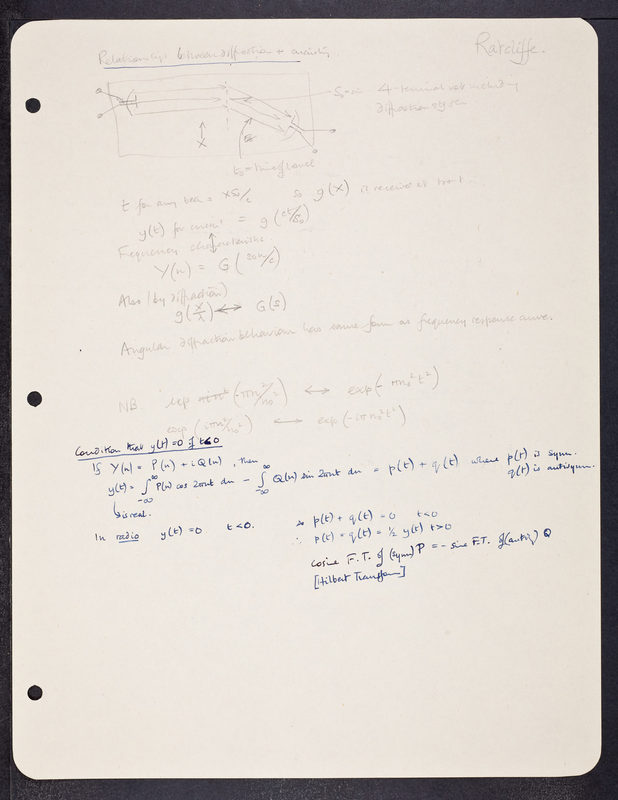 Ratcliffe.
Relationship between diffraction + circuitry.
4-terminal net including
diffraction system
X
t for any beam = xS/c so g(x) is received at front.
y(t) for current = g(ct/S₀)
Frequency characteristic
Y(n) = G(
Also (by diffraction)
g(x/λ) ↔ G(S)
Angular diffraction behaviour has same form as frequency response curve.
NB. exp (-πn²/n₀²) ↔ exp(-πn₀²t²)
exp (iπn²/n₀²) ↔ exp(-iπn₀²t²)
Condition that y(t)=0 if t<0
If Y(n) = P(n) + iQ(n), then
y(t) = ∫_{-∞}^{∞} P(n) cos 2πnt dn - ∫_{-∞}^{∞} Q(n) sin 2πnt dn = p(t) + q(t) where p(t) is symm.
q(t) is antisymm.
is real.
In radio y(t)=0 t<0. so p(t) + q(t) = 0 t<0
∴ p(t) = q(t) = ½ y(t) t>0
cosine F.T. of (symm) P = - sine F.T. of (anti) Q
[Hilbert Transform]